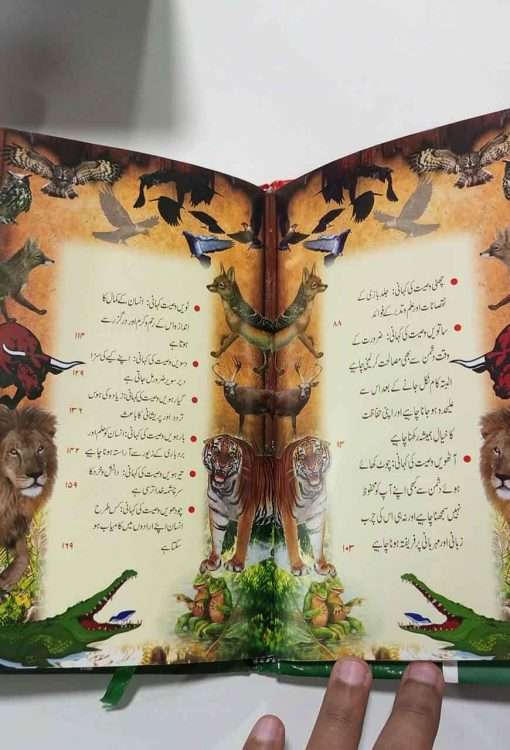 چھٹی وصیت کی کہانی: جلد بازی کے
نقصانات اور حلم و تدبر کے فوائد
۸۸
ساتویں وصیت کی کہانی: ضرورت کے
وقت دشمن سے بھی مصالحت کر لینی چاہیے
البتہ کام نکل جانے کے بعد اس سے
علیحدہ ہو جانا چاہیے اور اپنی حفاظت
کا خیال ہمیشہ رکھنا چاہیے
۹۳
آٹھویں وصیت کی کہانی: چوٹ کھائے
ہوئے دشمن سے کبھی اپنے آپ کو محفوظ
نہیں سمجھنا چاہیے اور نہ ہی اس کی چرب
زبانی اور مہربانی پر فریفتہ ہونا چاہیے
۱۰۳
نویں وصیت کی کہانی: انسان کے کمال کا
اندازہ اس کے رحم و کرم اور درگزر سے
ہوتا ہے
۱۱۳
دسویں وصیت کی کہانی: اپنے کیے کی سزا
دیر سویر ضرور مل جاتی ہے
۱۲۹
گیارہویں وصیت کی کہانی: زیادہ کی ہوس
تردد اور پریشانی کا باعث
۱۳۶
بارہویں وصیت کی کہانی: انسان کو علم اور
بردباری کے زیور سے آراستہ ہونا چاہیے
۱۴۲
تیرہویں وصیت کی کہانی: دانش و خرد کا
سرچشمہ خدا ترسی ہے
۱۵۹
چودہویں وصیت کی کہانی: کس طرح
انسان اپنے ارادوں میں کامیاب ہو
سکتا ہے
۱۶۹